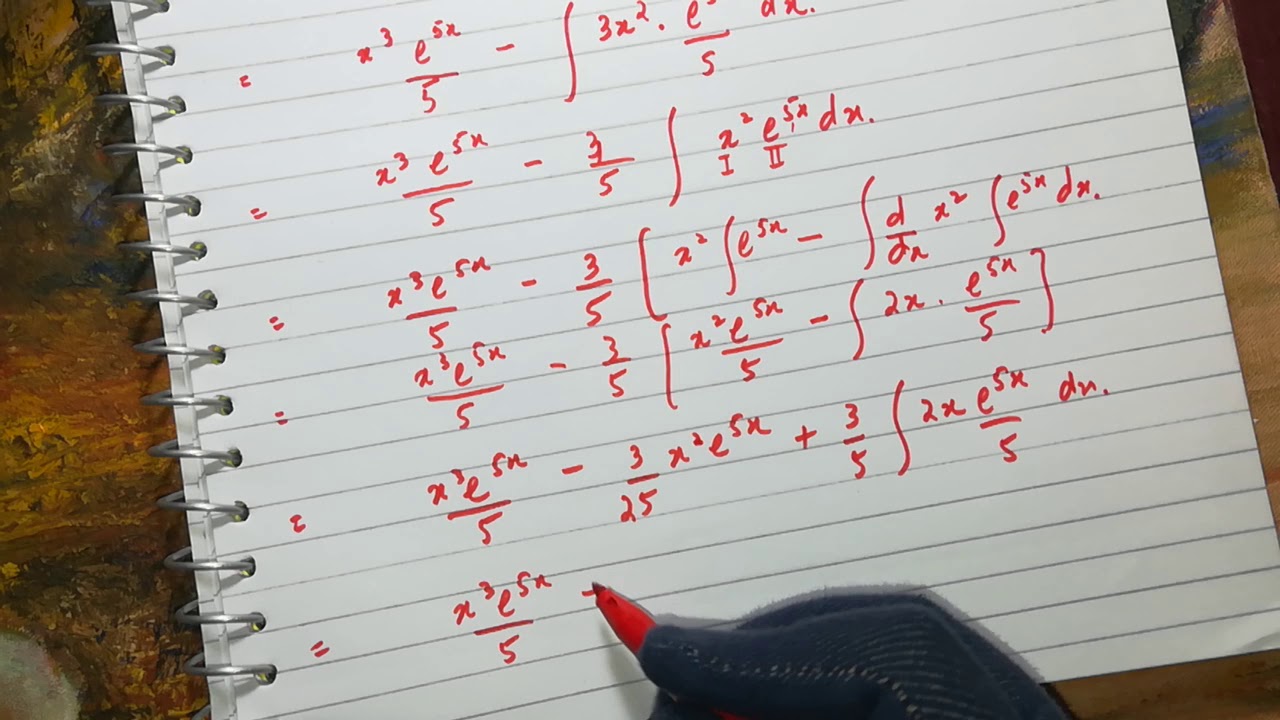 = x³ e^5x/5 - ∫ 3x² . e/5 dx.
= x³ e^5x/5 - 3/5 ∫ x² e^5x dx.
I II
= x³e^5x/5 - 3/5 [ x² ∫e^5x - ∫ d/dx x² ∫e^5x dx.
= x³e^5x/5 - 3/5 [ x²e^5x/5 - ∫ 2x . e^5x/5 ]
= x³e^5x/5 - 3/25 x²e^5x + 3/5 ∫ 2x e^5x/5 dx.
= x³e^5x/5 -